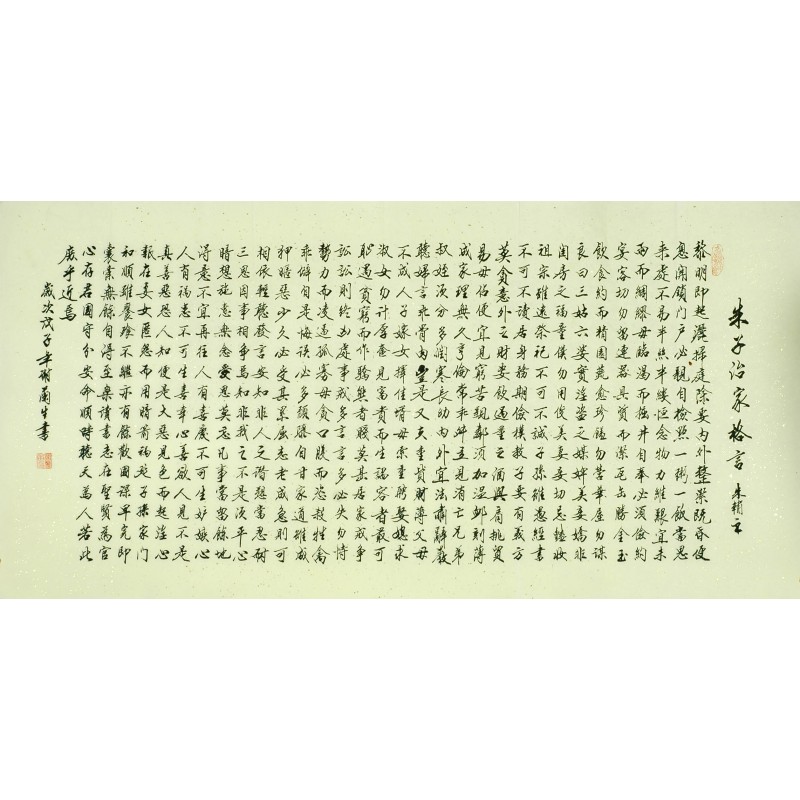 朱子治家格言
黎明即起灑掃庭除要内外整潔既昏便
息関鎖门户必親自檢點一粥一飯當思
来處不易半絲半縷恒念物力維艱宜未
雨而綢繆毋臨渴而掘井自奉必須儉約
宴客切勿留連器具質而潔瓦缶勝金玉
飲食約而精園蔬愈珍饈勿營華屋勿謀
良田三姑六婆實淫盗之媒婢美妾嬌非
閨房之福童僕勿用俊美妻妾切忌艶妝
祖宗雖遠祭祀不可不誠子孫雖愚經書
不可不讀居身務期儉樸教子要有義方
莫貪意外之財莫飲過量之酒與肩挑貿
易毋佔便宜見窮苦親鄰須加温卹刻薄
成家理無久亨倫常乖舛立見消亡兄弟
叔姪須分多潤寡長幼内外宜法肅辭嚴
聽婦言乖骨肉豈是丈夫重貲財薄父母
不成人子嫁女擇佳婿毋索重聘娶媳求
淑女勿計厚奩見富貴而生諂容者最可
耻遇貧窮而作驕態者賤莫甚居家戒争
訟訟則终凶處事戒多言言多必失勿恃
勢力而凌逼孤寡毋貪口腹而恣殺牲禽
乖僻自是悔誤必多頽隳自甘家道難成
狎暱惡少久必受其累屈志老成急則可
相依輕聽發言安知非人之譖想當忍耐
三思因事相争焉知非我之不是須平心
暗想施惠無念受恩莫忘凡事當留餘地
得意不宜再往人有喜慶不可生妒嫉心
人有禍患不可生喜幸心善欲人見不是
真善惡恐人知便是大惡見色而起淫心
報在妻女匿怨而用暗箭禍延子孫家门
和順雖饔飧不繼亦有餘歡國課早完即
囊橐無餘自得至樂讀書志在聖賢為官
心存君國守分安命順時聽天為人若此
庶乎近焉
歲次戊子年谢蘭生書